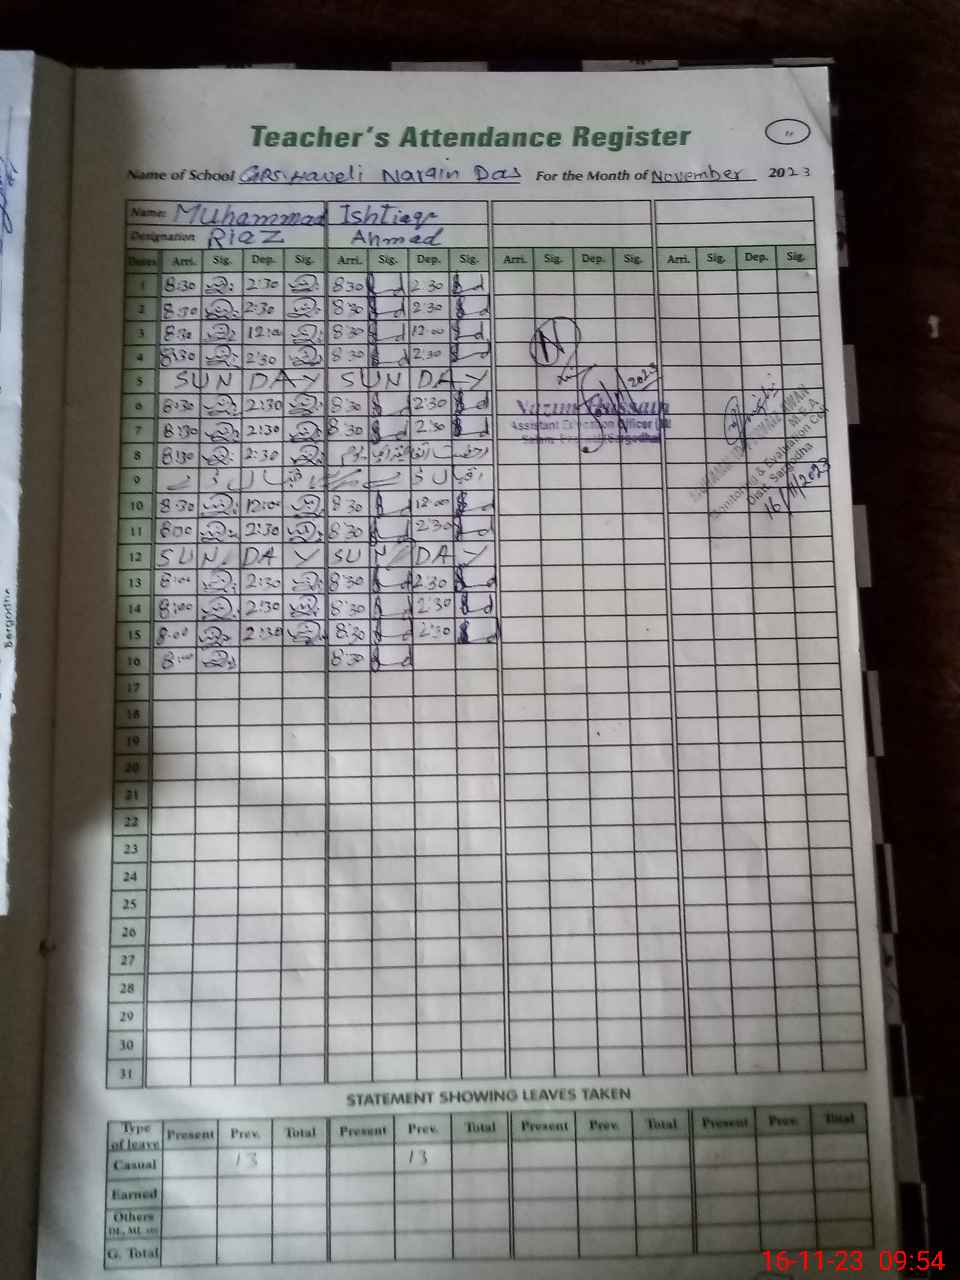 Teacher's Attendance Register
Name of School GPS Haveli Narain Das For the Month of November 2023
Name: Muhammad Ishtiaqe
Designation Riaz Ahmad
Dates Arri. Sig. Dep. Sig. Arri. Sig. Dep. Sig. Arri. Sig. Dep. Sig. Arri. Sig. Dep. Sig.
1 8:30 2:30 8:30 2:30
2 8:30 2:30 8:30 2:30
3 8:30 12:00 8:30 12:00
4 8:30 2:30 8:30 2:30
5 SUNDAY SUNDAY
6 8:30 2:30 8:30 2:30
7 8:30 2:30 8:30 2:30
8 8:30 2:30
9
10 8:30 12:00 8:30 12:00
11 8:00 2:30 8:30 2:30
12 SUNDAY SUNDAY
13 8:00 2:30 8:30 2:30
14 8:00 2:30 8:30 2:30
15 8:00 2:30 8:30 2:30
16 8:00 8:30
17
18
19
20
21
22
23
24
25
26
27
28
29
30
31
2023
Nazim Hussain
Assistant Education Officer
Sargodha
M.E.A
Monitoring & Evaluation Cell
Distt. Sargodha
16/11/2023
STATEMENT SHOWING LEAVES TAKEN
Type of leave Present Prev. Total Present Prev. Total Present Prev. Total Present Prev. Total
Casual 13 13
Earned
Others
G. Total
Sargodha
16-11-23 09:54